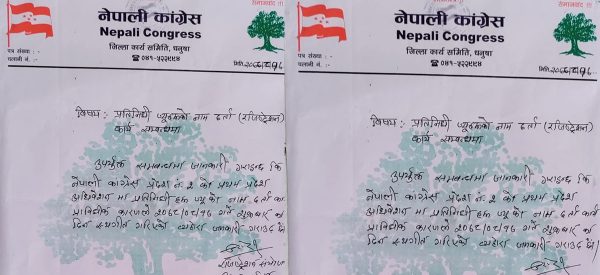 नेपाली कांग्रेस
Nepali Congress
जिल्ला कार्य समिति, धनुषा
☎ ०४१-५२२९९४
पत्र संख्या : -
चलानी नं. :-
मिति:
विषय : प्रतिनिधी
नाम दर्ता (रजिष्ट्रेशन)
कार्य सम्बन्धमा
उपर्युक्त सम्बन्धमा जानकारी गराइन्छ कि
नेपाली कांग्रेस प्रदेश नं. 2 को प्रथम प्रदेश
अधिवेशन मा प्रतिनिधी हरू को नाम दर्ता कार्य
प्राविधीक कारणले गते शुक्रबार का
दिन स्थगीत गरिएको व्यहोरा जानकारी गराउँदछौं।
समाजवाद !!!
नेपाली कांग्रेस
Nepali Congress
जिल्ला कार्य समिति, धनुषा
☎ ०४१-५२२९९४
पत्र संख्या : -
चलानी नं. :-
मिति:
विषय : प्रतिनिधी
नाम दर्ता (रजिष्ट्रेशन)
कार्य सम्बन्धमा
उपर्युक्त सम्बन्धमा जानकारी गराइन्छ कि
नेपाली कांग्रेस प्रदेश नं. 2 को प्रथम प्रदेश
अधिवेशन मा प्रतिनिधी हरू को नाम दर्ता कार्य
प्राविधीक कारणले गते शुक्रबार का
दिन स्थगीत गरिएको व्यहोरा जानकारी गराउँदछौं।